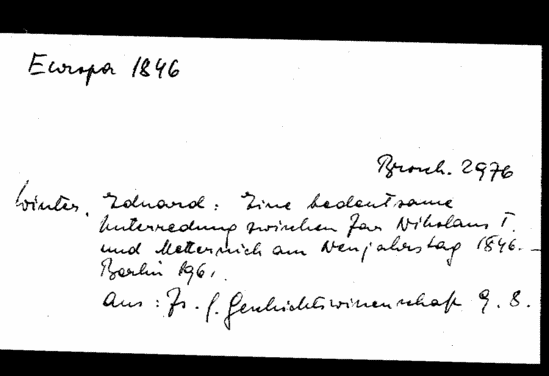 Europa 1846
Brosch. 2976
Winter, Eduard: Eine bedeutsame
Unterredung zwischen Zar Nikolaus I.
und Metternich am Neujahrstag 1846. –
Berlin 1961.
Aus: Zs. f. Geschichtswissenschaft 9. 8.